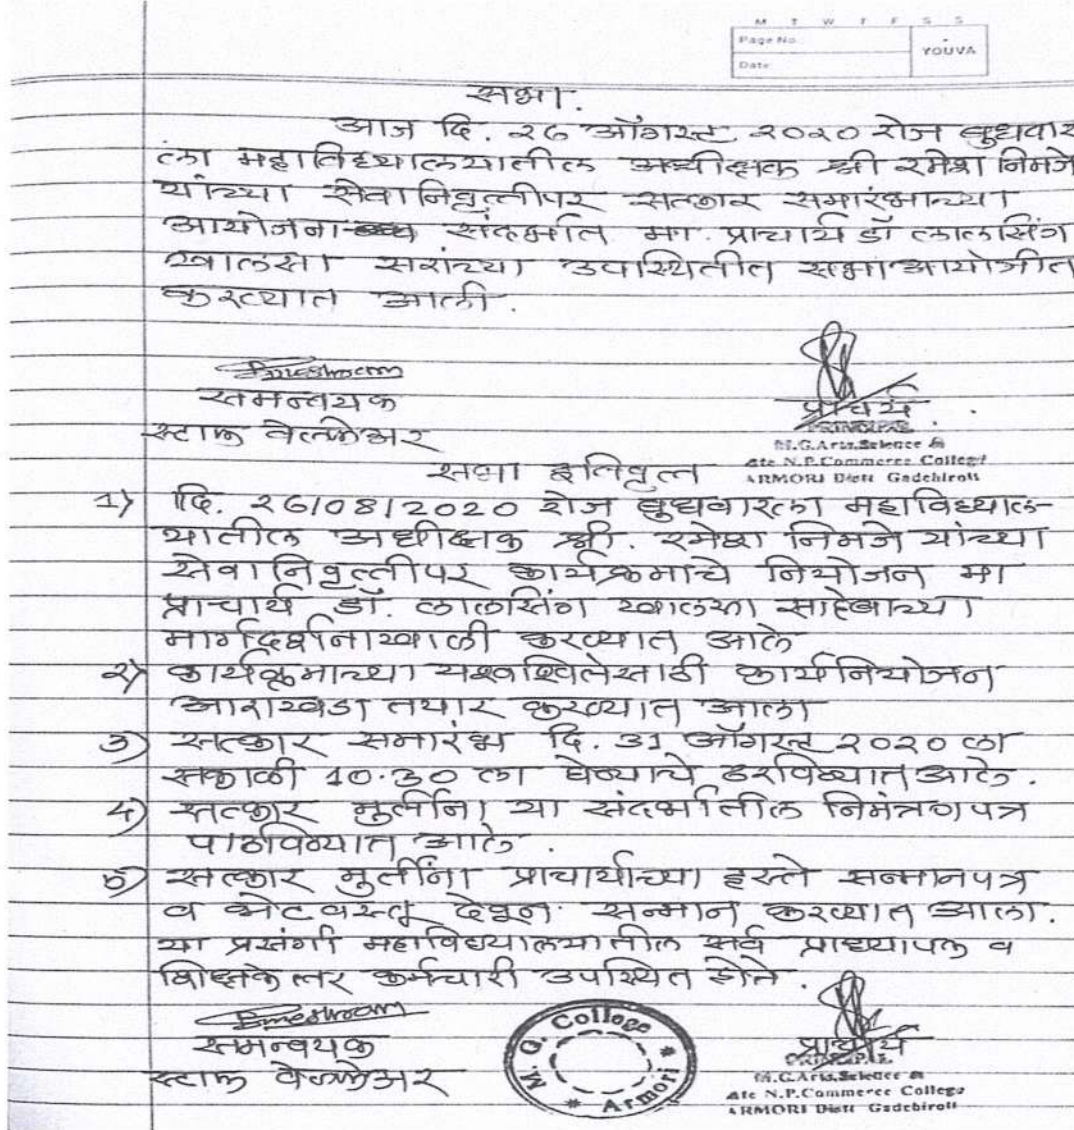 M T W T F S S
Page No.:
YOUVA
Date:
सभा.
आज दि. २६ ऑगस्ट २०२० रोज बुधवार
ला महाविद्यालयातील अधीक्षक श्री रमेश निमजे
यांच्या सेवानिवृत्तीपर सत्कार समारंभाच्या
आयोजना संदर्भात मा. प्राचार्य डॉ लालसिंग
खालसा सरांच्या उपस्थितीत सभा आयोजीत
करण्यात आली.
समन्वयक
स्टाफ वेल्फेअर
प्राचार्य
PRINCIPAL
M.G.Arts,Science &
ate N.P.Commerce College
ARMORI Distt Gadchiroli
सभा इतिवृत्त
1) दि. २6/08/2020 रोज बुधवारला महाविद्याल-
यातील अधीक्षक श्री. रमेश निमजे यांच्या
सेवानिवृत्तीपर कार्यक्रमाचे नियोजन मा
प्राचार्य डॉ. लालसिंग खालसा साहेबांच्या
मार्गदर्शनाखाली करण्यात आले
२) कार्यक्रमाच्या यशस्वितेसाठी कार्यनियोजन
आराखडा तयार करण्यात आला
3) सत्कार समारंभ दि. 31 ऑगस्ट २०२० ला
सकाळी 10.30 ला घेण्याचे ठरविण्यात आले.
4) सत्कार मुर्तींना या संदर्भातील निमंत्रण पत्र
पाठविण्यात आले.
5) सत्कार मुर्तींना प्राचार्यांच्या हस्ते सन्मानपत्र
व भेटवस्तू देवून सन्मान करण्यात आला.
या प्रसंगी महाविद्यालयातील सर्व प्राध्यापक व
शिक्षकेत्तर कर्मचारी उपस्थित होते.
समन्वयक
स्टाफ वेल्फेअर
M. G. College
* Armori *
प्राचार्य
PRINCIPAL
M.G.Arts,Science &
ate N.P.Commerce College
ARMORI Distt Gadchiroli